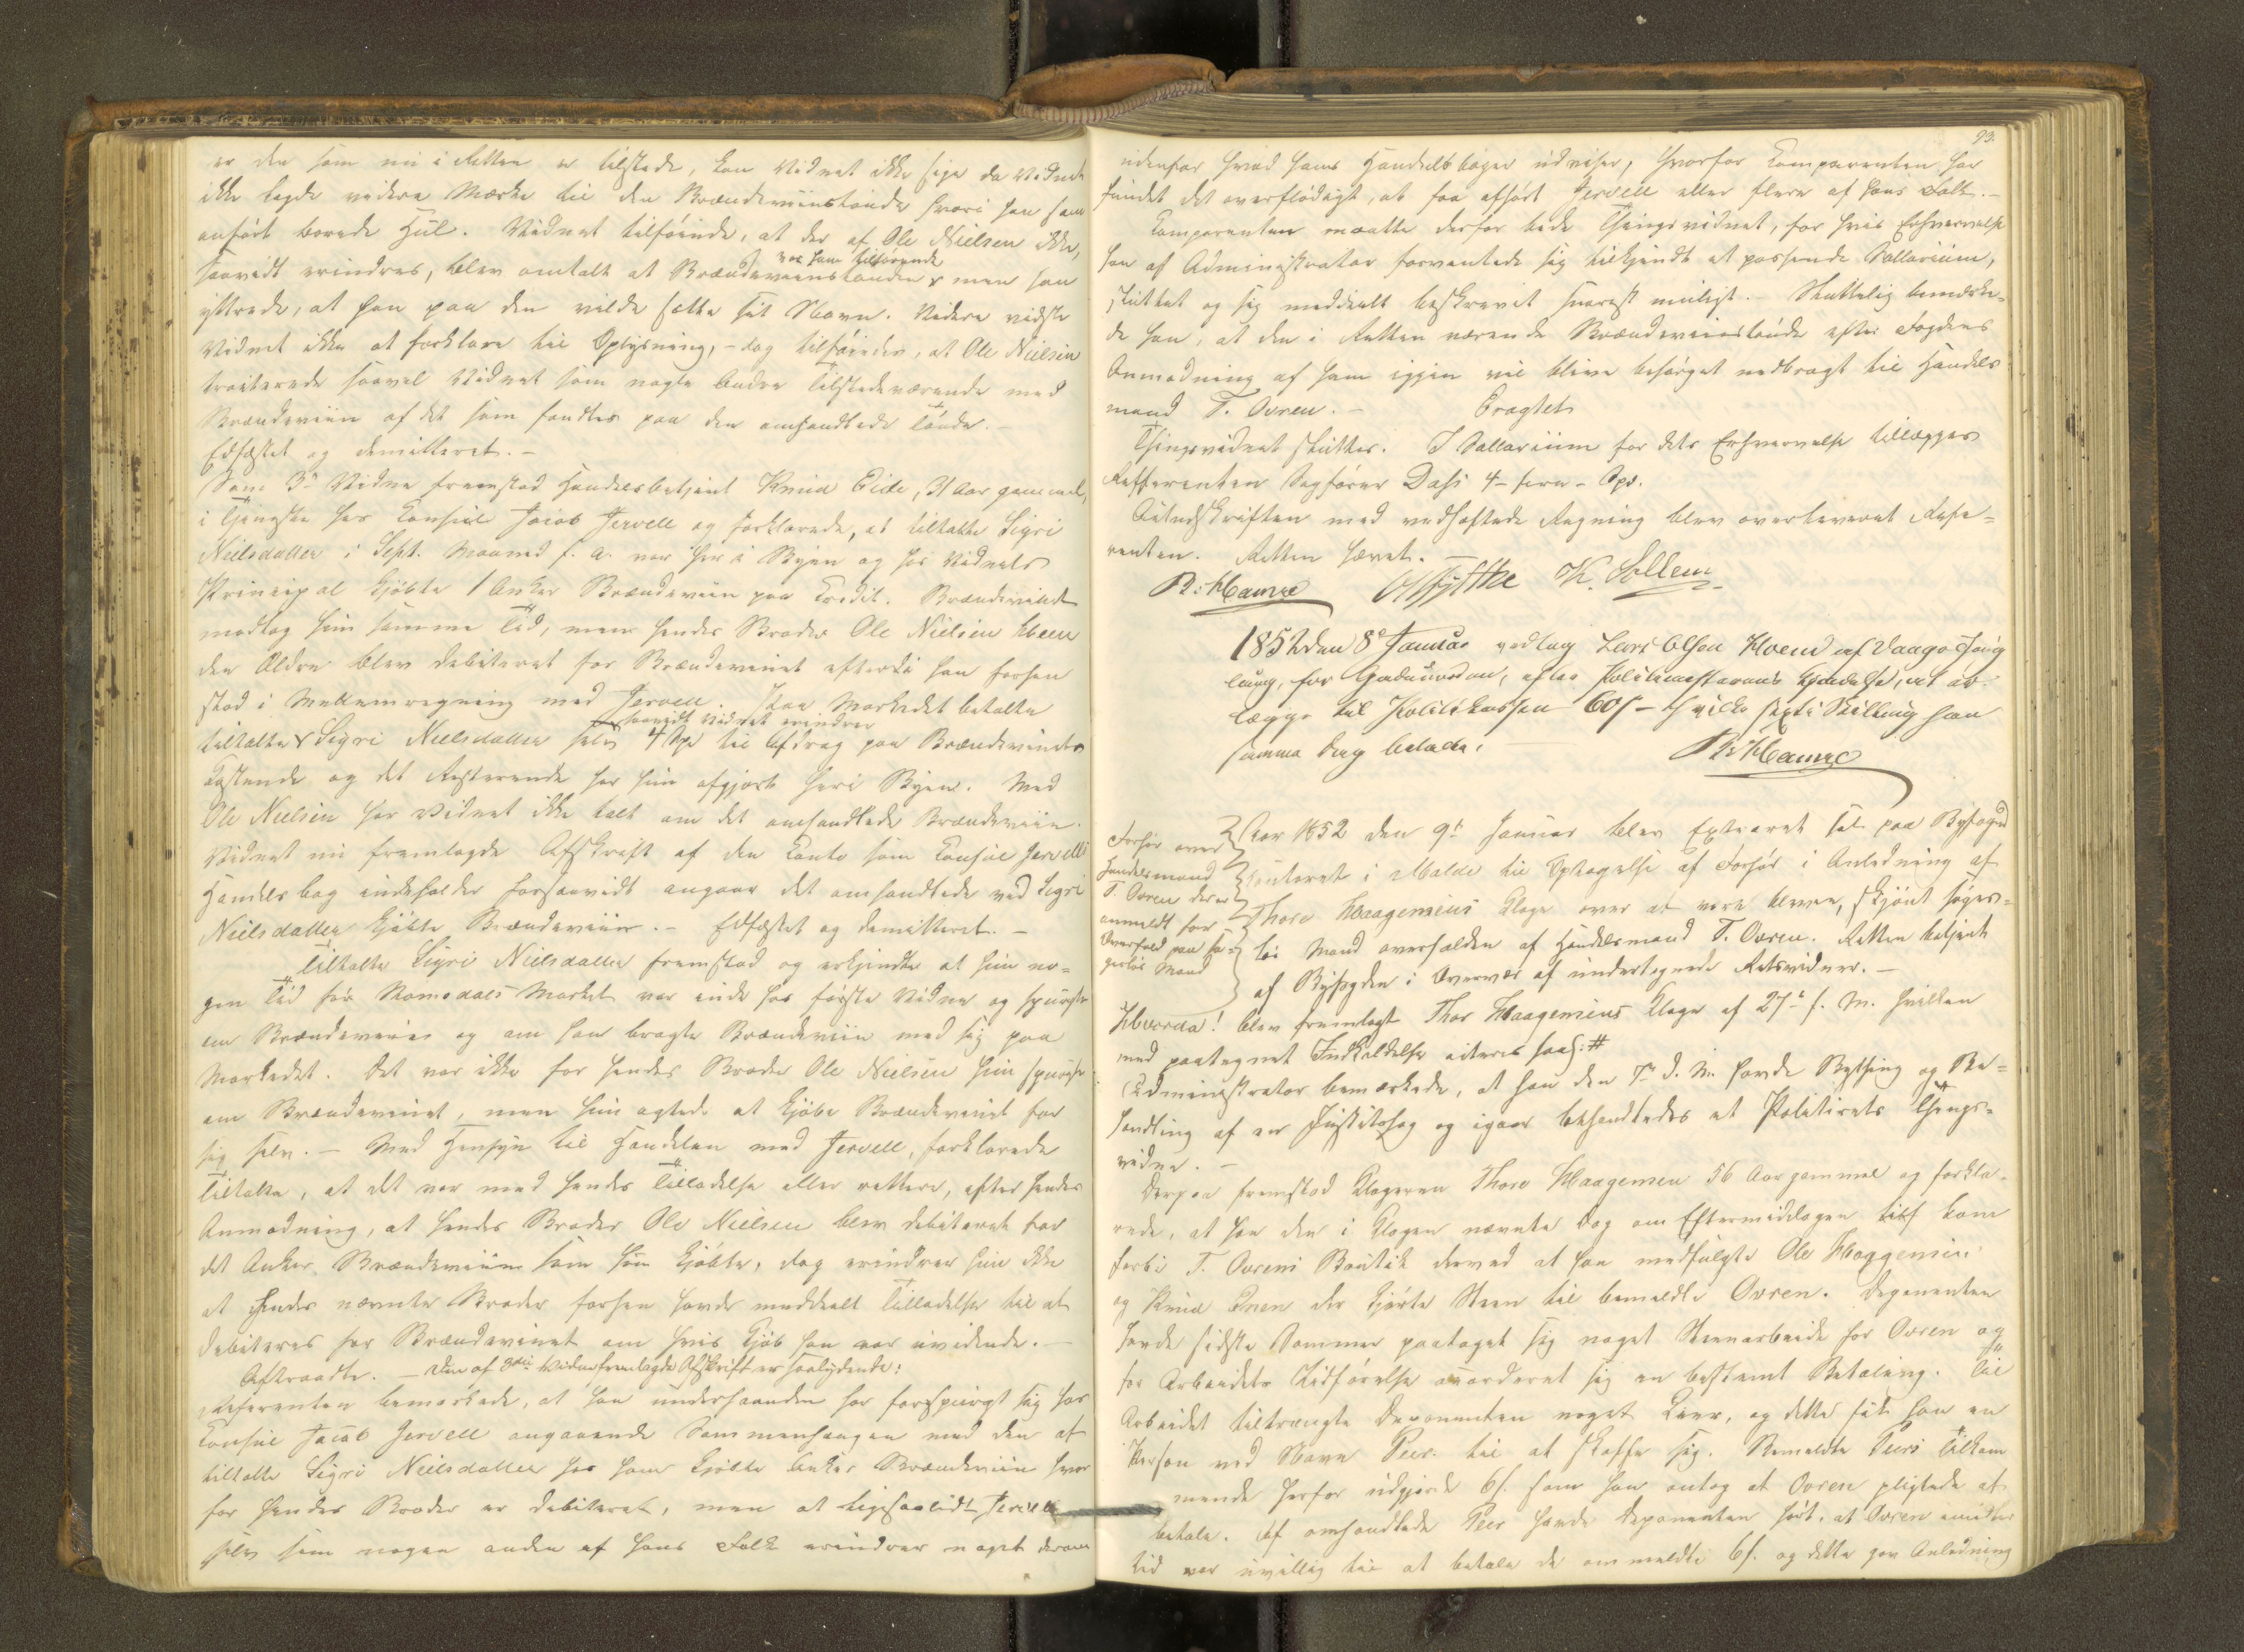 er den som nu i Retten er tilstede, kan Vidnet ikke sige da Vidnet
ikke lagde videre Mærke til den Brændeviinstønde hvori han som
anført borede Hul. Vidnet tilføiede, at der af Ole Nielsen ikke,
saavidt erindres, blev omtalt at Brændeviinstønden var ham tilhørende men han
yttrede, at han paa den vilde sætte sit Navn. Videre vidste
Vidnet ikke at forklare til Oplysning, - dog tilføiedes, at Ole Nielsen
trakterede saavel Vidnet som nogle Andre Tilstedeværende med
Brændeviin af det som fandtes paa den omhandlede Tønde. -
Edfæstet og demitteret. -
Som 3die Vidne fremstod Handelsbetjent Knud Eide, 31 Aar gammel,
i Tjeneste hos Consul Jacob Jervell og forklarede, at tiltalte Sigri
Nielsdatter i Sept. Maaned f. A. var her i Byen og hos Vidnets
Principal kjøbte 1 Anker Brændeviin paa Credit. Brændevinet
modtog hun samme Tid, men hendes Broder Ole Nielsen
den Ældre blev debiteret for Brændevinet efterdi han forhen
stod i Mellemregning med Jervell. Paa Markedet betalte
tiltalte Sigri Nielsdatter saavidt Vidnet erindrer selv 4 Spd til Afdrag paa Brændevinets
Kostende og det Resterende har hun afgjort her i Byen. Med
Ole Nielsen har Vidnet ikke talt om det omhandlede Brændeviin.
Vidnet nu fremlagde Afskrift af den Conto som Consul Jervells
Handelsbog indeholder forsaavidt angaar det omhandlede ved Sigri
Nielsdatter kjøbte Brændeviin. - Edfæstet og demitteret. -
Tiltalte Sigri Nielsdatter fremstod og erkjendte at hun no-
gen Tid før Romsdals Market var inde hos første Vidne og spurgte
om Brændeviin og om han bragte Brændeviin med sig paa
Markedet. Det var ikke for hendes Broder Ole Nielsen hun spurgte
om Brændevinet, men hun agtede at kjøbe Brændevinet for
sig selv. - Med Hensyn til Handelen med Jervell, forklarede
Tiltalte, at det var med hendes Tilladelse eller rettere, efter hendes
Anmodning, at hendes Broder Ole Nielsen blev debiteret for
det Anker Brændeviin som hun kjøbte, dog erindrer hun ikke
at hendes nævnte Broder forhen havde meddeelt Tilladelse til at
debiteres for Brændevinet om hvis Kjøb han var uvidende. -
Aftraadte. - Den af 3die Vidne fremlagte Afskrift er saalydende:
Referenten bemærkede, at han underhaanden har forspurgt sig hos
Consul Jacob Jervell angaaende Sammenhængen med den af
tiltalte Sigri Nielsdatter hos ham kjøbte Anker Brændeviin hvor
for hendes Broder er debiteret, men at ligesaalidt Jervell
selv som nogen anden af hans Folk erindrer noget derom
93.
udenfor hvad hans Handelsbøger udviser, hvorfor Comparenten har
fundet det overflødigt, at faa afhørt Jervell eller flere af hans Folk. -
Comparenten maatte derfor lade Thingsvidnet, for hvis Erhvervelse
han af Administrator forventede sig tilkjendt et passende Sallarium,
sluttet og sig meddeelt beskrevet snarest muligt. Sluttelig bemærke-
de han, at den i Retten værende Brændeviinstønde efter Fogdens
Anmodning af ham igjen vil blive besørget nedbragt til Handels-
mand T. Ovren. - Eragtet
Thingsvidnet sluttes. I Sallarium for dets Erhvervelse tillægges
Refferenten Sagfører Dahl 4 - fire - Spd.
Citedskriften med vedheftede Regning blev overleveret Refe-
renten. Retten hævet.
R: Hamre K. Sollem
1852 den 8de Januar vedtog Lars Olsen Hoem af Vaagø Jøig
for Gadeuorden, efter Politimesterens Kjendelse, at er-
lægge til Politikassen 60 s - hvilke sexti Skilling han
samme Dag betalte.
R: Hamre
Forhør over
Handelsmand
T. Ovren der er
anmeldt for
Overfald paa sa-
gesløs Mand
Aar 1852 den 9de Januar blev Extraret sat paa Byfoged
Contoret i Molde til Optagelse af Forhør i Anledning af
Thore Haagensens Klage over at være bleven, skjønt sages-
løs Mand overfalden af Handelsmand T. Ovren. Retten betjent
af Byfogden i Overvær af undertegnede Retsvidner. -
Hvorda! blev fremlagt Thor Haagensens Klage af 27de f. M. hvilken
med paategnet Indkaldelse citeres saal: #
Administrator bemærkede, at han den 7de d. M. havde Bything og Be-
handling af en Justitssag og igaar behandledes et Politirets Things-
vidne. -
Derpaa fremstod Klageren Thore Haagensen 56 Aar gammel og forkla-
rede, at han den i Klagen nævnte Dag om Eftermiddagen kom
forbi T. Ovrens Boutik derved at han medfulgte Ole Haagensen
og Knud Enen der kjørte Steen til bemeldte Ovren. Deponenten
havde sidste Sommer paataget sig noget Steenarbeide for Ovren og
for Arbeidets Udførelse accorderet sig en bestemt Betaling. Til
Arbeidet tiltrængte Deponenten noget Leer, og dette fik han en
Person ved Navn Peer til at skaffe sig. Bemeldte Peers Tilkom-
mende herfor udgjorde 6 s. som han antog at Ovren pligtede at
betale. Af omhandlede Peer havde Deponenten hørt, at Ovren
tid var uvillig til at betale de ommeldte 6 s. og dette gav Anledning